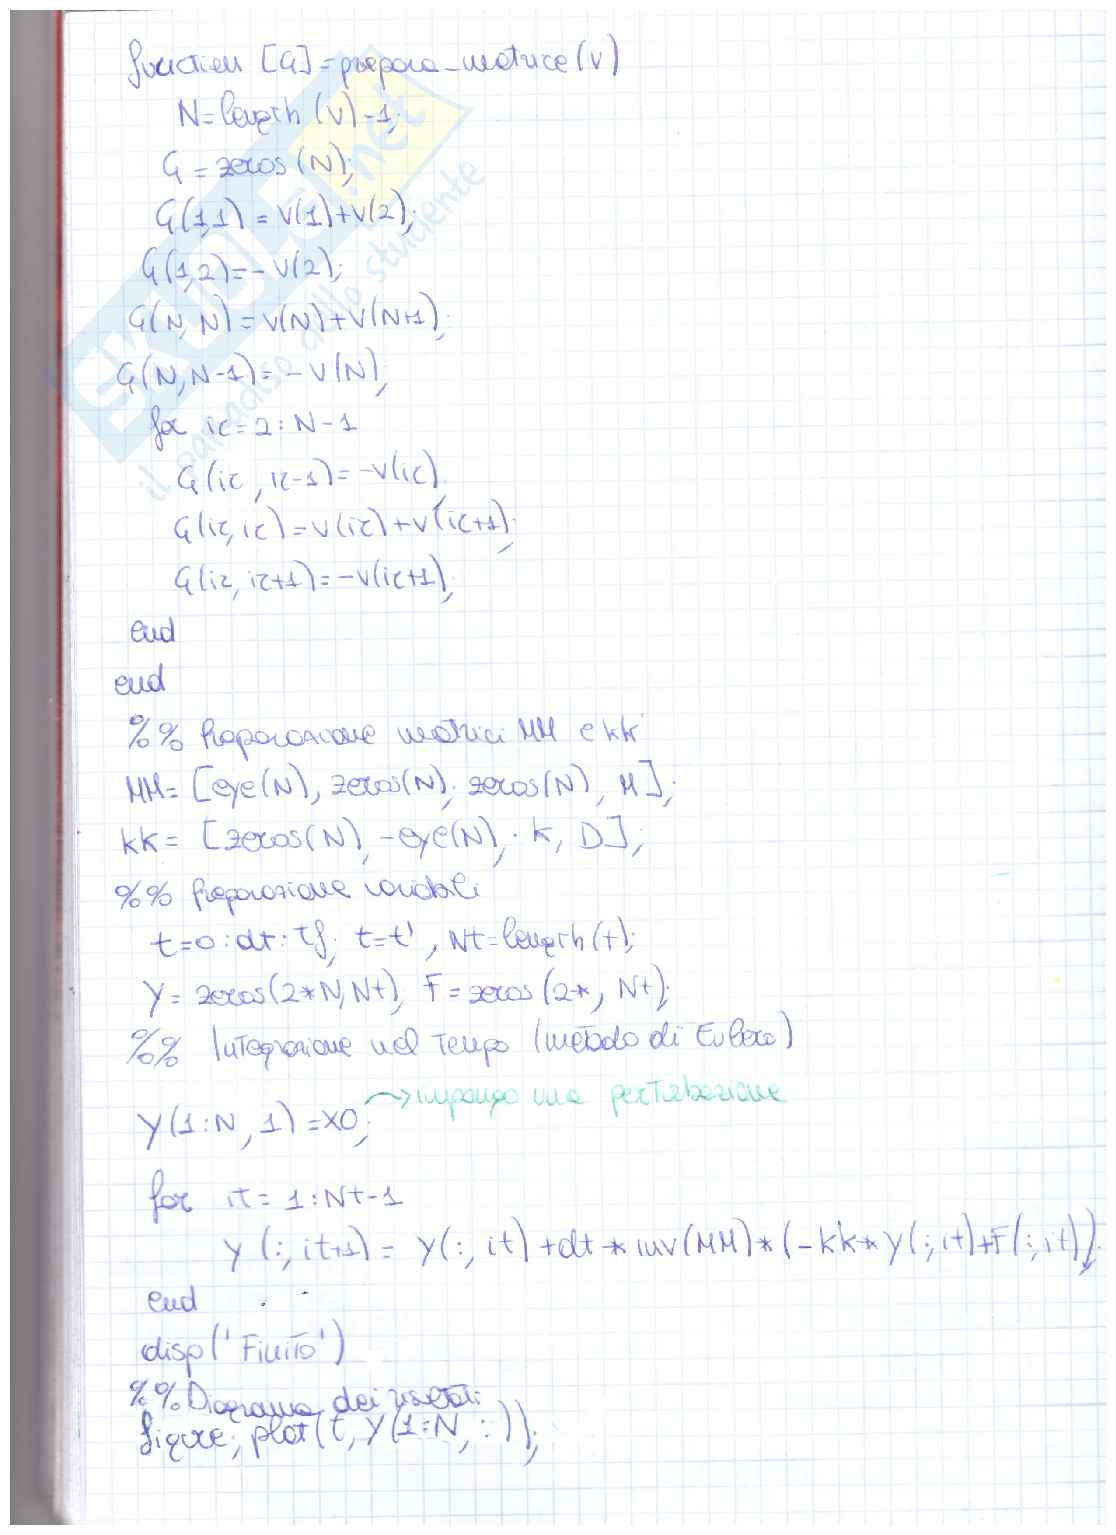 function [G]=prepara_matrice(v)
N=length(v)-1;
G=zeros(N);
G(1,1)=v(1)+v(2);
G(1,2)=-v(2);
G(N,N)=v(N)+v(N+1);
G(N,N-1)=-v(N);
for ic=2:N-1
G(ic,ic-1)=-v(ic);
G(ic,ic)=v(ic)+v(ic+1);
G(ic,ic+1)=-v(ic+1);
end
end
%% Preparazione matrici MM e kk
MM=[eye(N), zeros(N); zeros(N), M];
kk=[zeros(N), -eye(N); k, D];
%% preparazione variabili
t=0:dt:tf; t=t', Nt=length(t);
Y=zeros(2*N,Nt), F=zeros(2*, Nt);
%% Integrazione nel tempo (metodo di Eulero)
→ impongo una perturbazione
Y(1:N,1)=x0;
for it=1:Nt-1
Y(:,it+1)= Y(:,it)+dt*inv(MM)*(-kk*Y(:,it)+F(:,it));
end
disp('Finito')
%% Diagramma dei risultati
figure; plot(t,Y(1:N,:));
SKUOLA.net
il paradiso dello studente